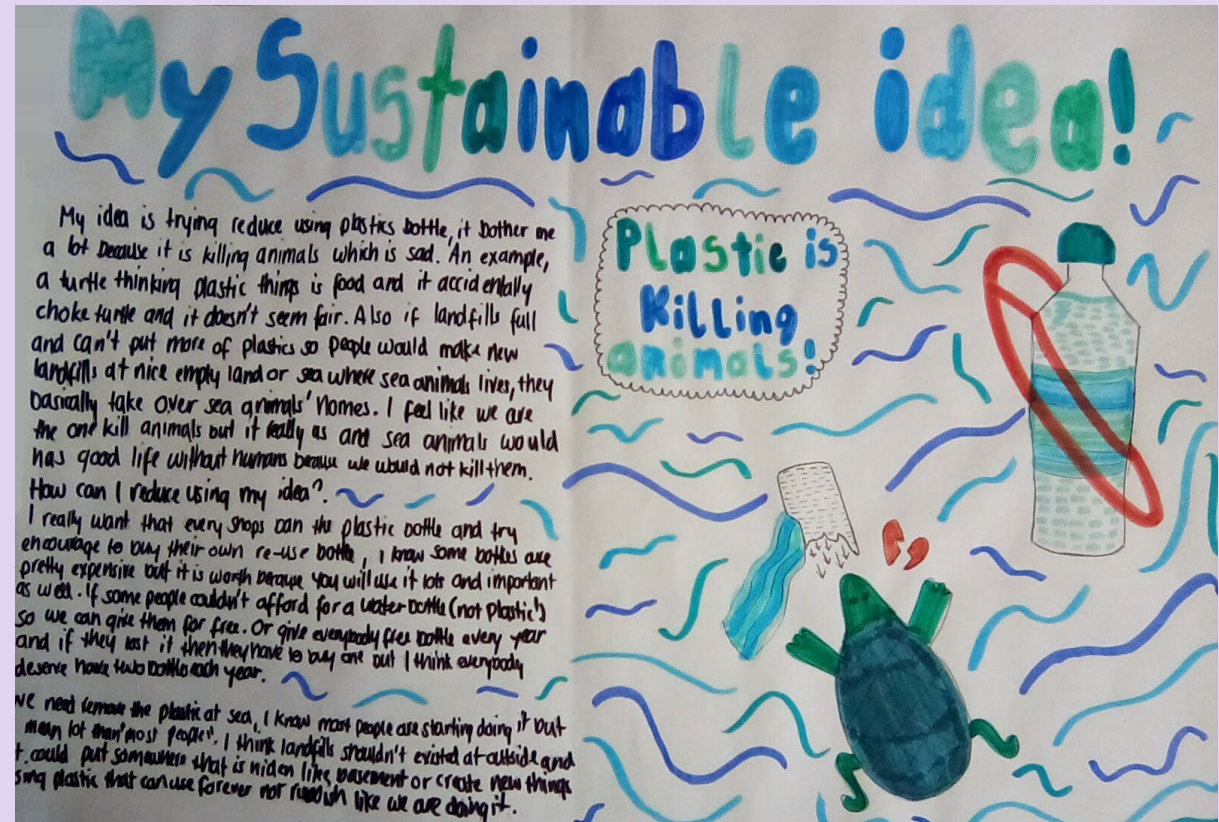 My Sustainable idea!
My idea is trying reduce using plastics bottle, it bother me
a lot because it is killing animals which is sad. An example,
a turtle thinking plastic things is food and it accidentally
choke turtle and it doesn't seem fair. Also if landfills full
and can't put more of plastics so people would make new
landfills at nice empty land or sea where sea animals lives, they
basically take over sea animals' homes. I feel like we are
the one kill animals but it really us and sea animals would
has good life without humans because we would not kill them.
How can I reduce using my idea?
I really want that every shops ban the plastic bottle and try
encourage to buy their own re-use bottle, i know some bottles are
pretty expensive but it is worth because you will use it lots and important
as well. If some people couldn't afford for a water bottle (not plastic!)
so we can give them for free. Or give everybody free bottle every year
and if they lost it then they have to buy one but I think everybody
deserve have two bottle each year.
we need remove the plastic at sea, I know most people are starting doing it but
mean lot than "most people". I think landfills shouldn't existed at outside and
could put somewhere that is hiden like basement or create new things
using plastic that can use forever not rubbish like we are doing it.
Plastic is
Killing
animals!